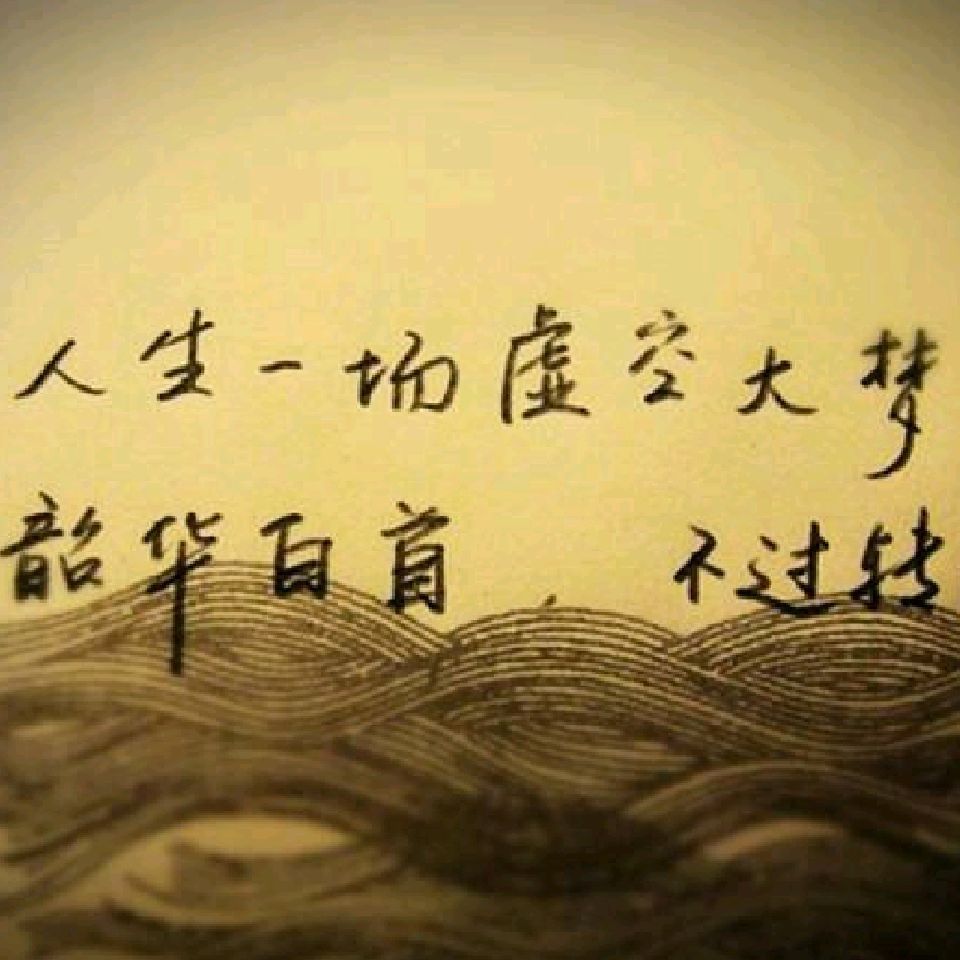 人生一场虚空大梦
韶华百首, 不过转